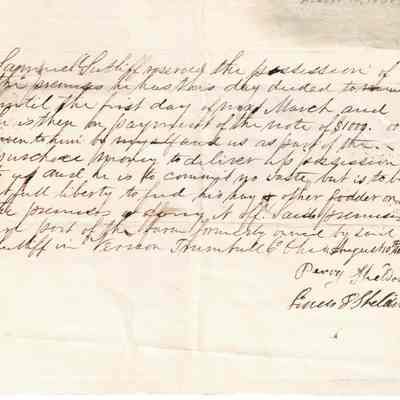 Samuel Sutliff reserves the possession of
the premises he has this day deeded to
until the first day of next March and
is then on payment of the note of $1000.
to him by myself and us as part of the
purchase money to deliver up possession
to us and he is to commit no waste but is to
full liberty to feed his hay & other fodder on
premises & carry it off Said premises
part of the farm formerly owned by said
Sutliff in Vernon Trumbull Co Ohio August
Percy Sheldon